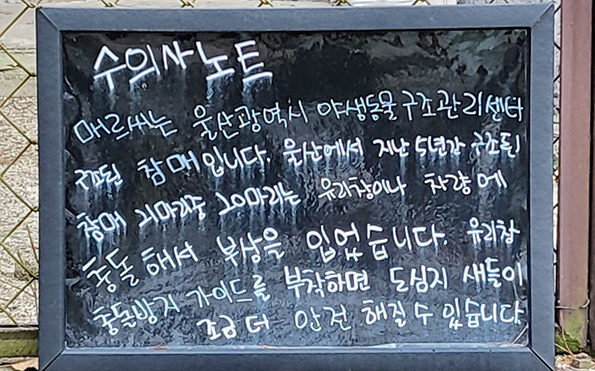 수의사 노트
매르씨는 울산광역시 야생동물구조관리센터
구조된 참매입니다. 울산에서 지난 5년간 구조된
참매 21마리중 20마리는 유리창이나 차량에
충돌해서 부상을 입었습니다. 유리창
충돌방지 가이드를 부착하면 도심지 새들이
조금 더 안전해질 수 있습니다